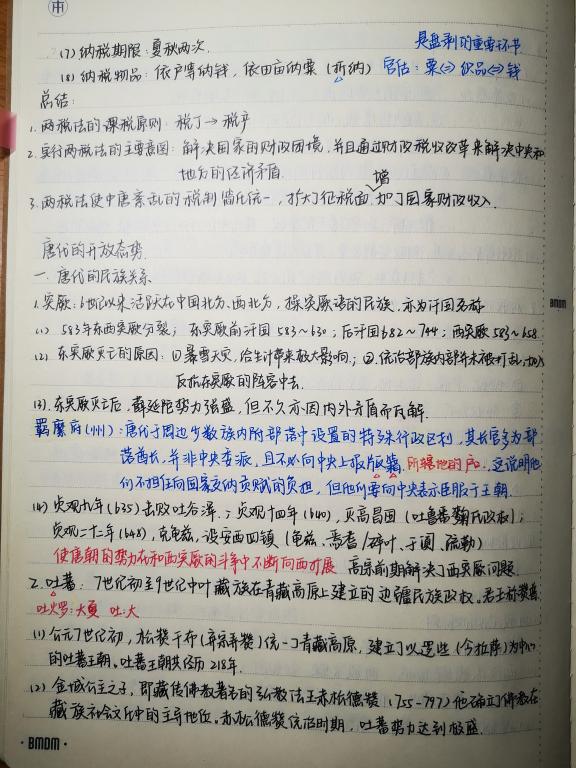 中
是盘剥的重要环节
(7) 纳税期限:夏秋两次.
(8) 纳税物品:依户等纳钱,依田亩纳粟(折纳) 官估:粟⇔织品⇔钱
总结:
1. 两税法的课税原则:税丁→税产
2. 实行两税法的主要意图:解决国家的财政困境,并且通过财政税收改革来解决中央和
地方的经济矛盾.
增
3. 两税法使中唐紊乱的税制暂归统一,扩大了征税面,加了国家财政收入.
唐代的开放态势.
一. 唐代的民族关系.
1. 突厥:6世纪以来活跃在中国北方、西北方,操突厥语的民族,亦为汗国名称
(1) 583年东西突厥分裂;东突厥前汗国583~630;后汗国682~744;西突厥583~658.
(2) 东突厥灭亡的原因:①暴雪天灾,给生计带来极大影响;②.统治部族内部并未被打乱,加入
反抗东突厥的阵容中去.
(3). 东突厥灭亡后,薛延陀势力强盛,但不久亦因内外矛盾而瓦解.
羁縻府(州):唐代于周边少数族内附部落中设置的特殊行政区划,其长官多为部
落酋长,并非中央委派,且不必向中央上报版籍.所辖地的户.,这说明他
们不担任向国家交纳贡赋的负担,但他们要向中央表示臣服于王朝.
(4) 贞观九年(635)击败吐谷浑.;贞观十四年(640),灭高昌国(吐鲁番麴氏政权);
贞观二十二年(648),克龟兹,设安西四镇(龟兹、焉耆/碎叶、于阗、疏勒)
使唐朝的势力在和西突厥的斗争中不断向西扩展 高宗前期解决了西突厥问题.
2. 吐蕃:7世纪初至9世纪中叶藏族在青藏高原上建立的边疆民族政权.君主称赞普
吐火罗:大夏 吐:大
(1) 公元7世纪初,松赞干布(弃宗弄赞)统一了青藏高原,建立了以逻些(今拉萨)为中心
的吐蕃王朝.吐蕃王朝共经历218年.
(2) 金城公主之子,即藏传佛教著名的弘教法王赤松德赞(755-797)他确立了佛教在
藏族社会文化中的主导地位.赤松德赞统治时期,吐蕃势力达到极盛.
BMDM
·BMDM·